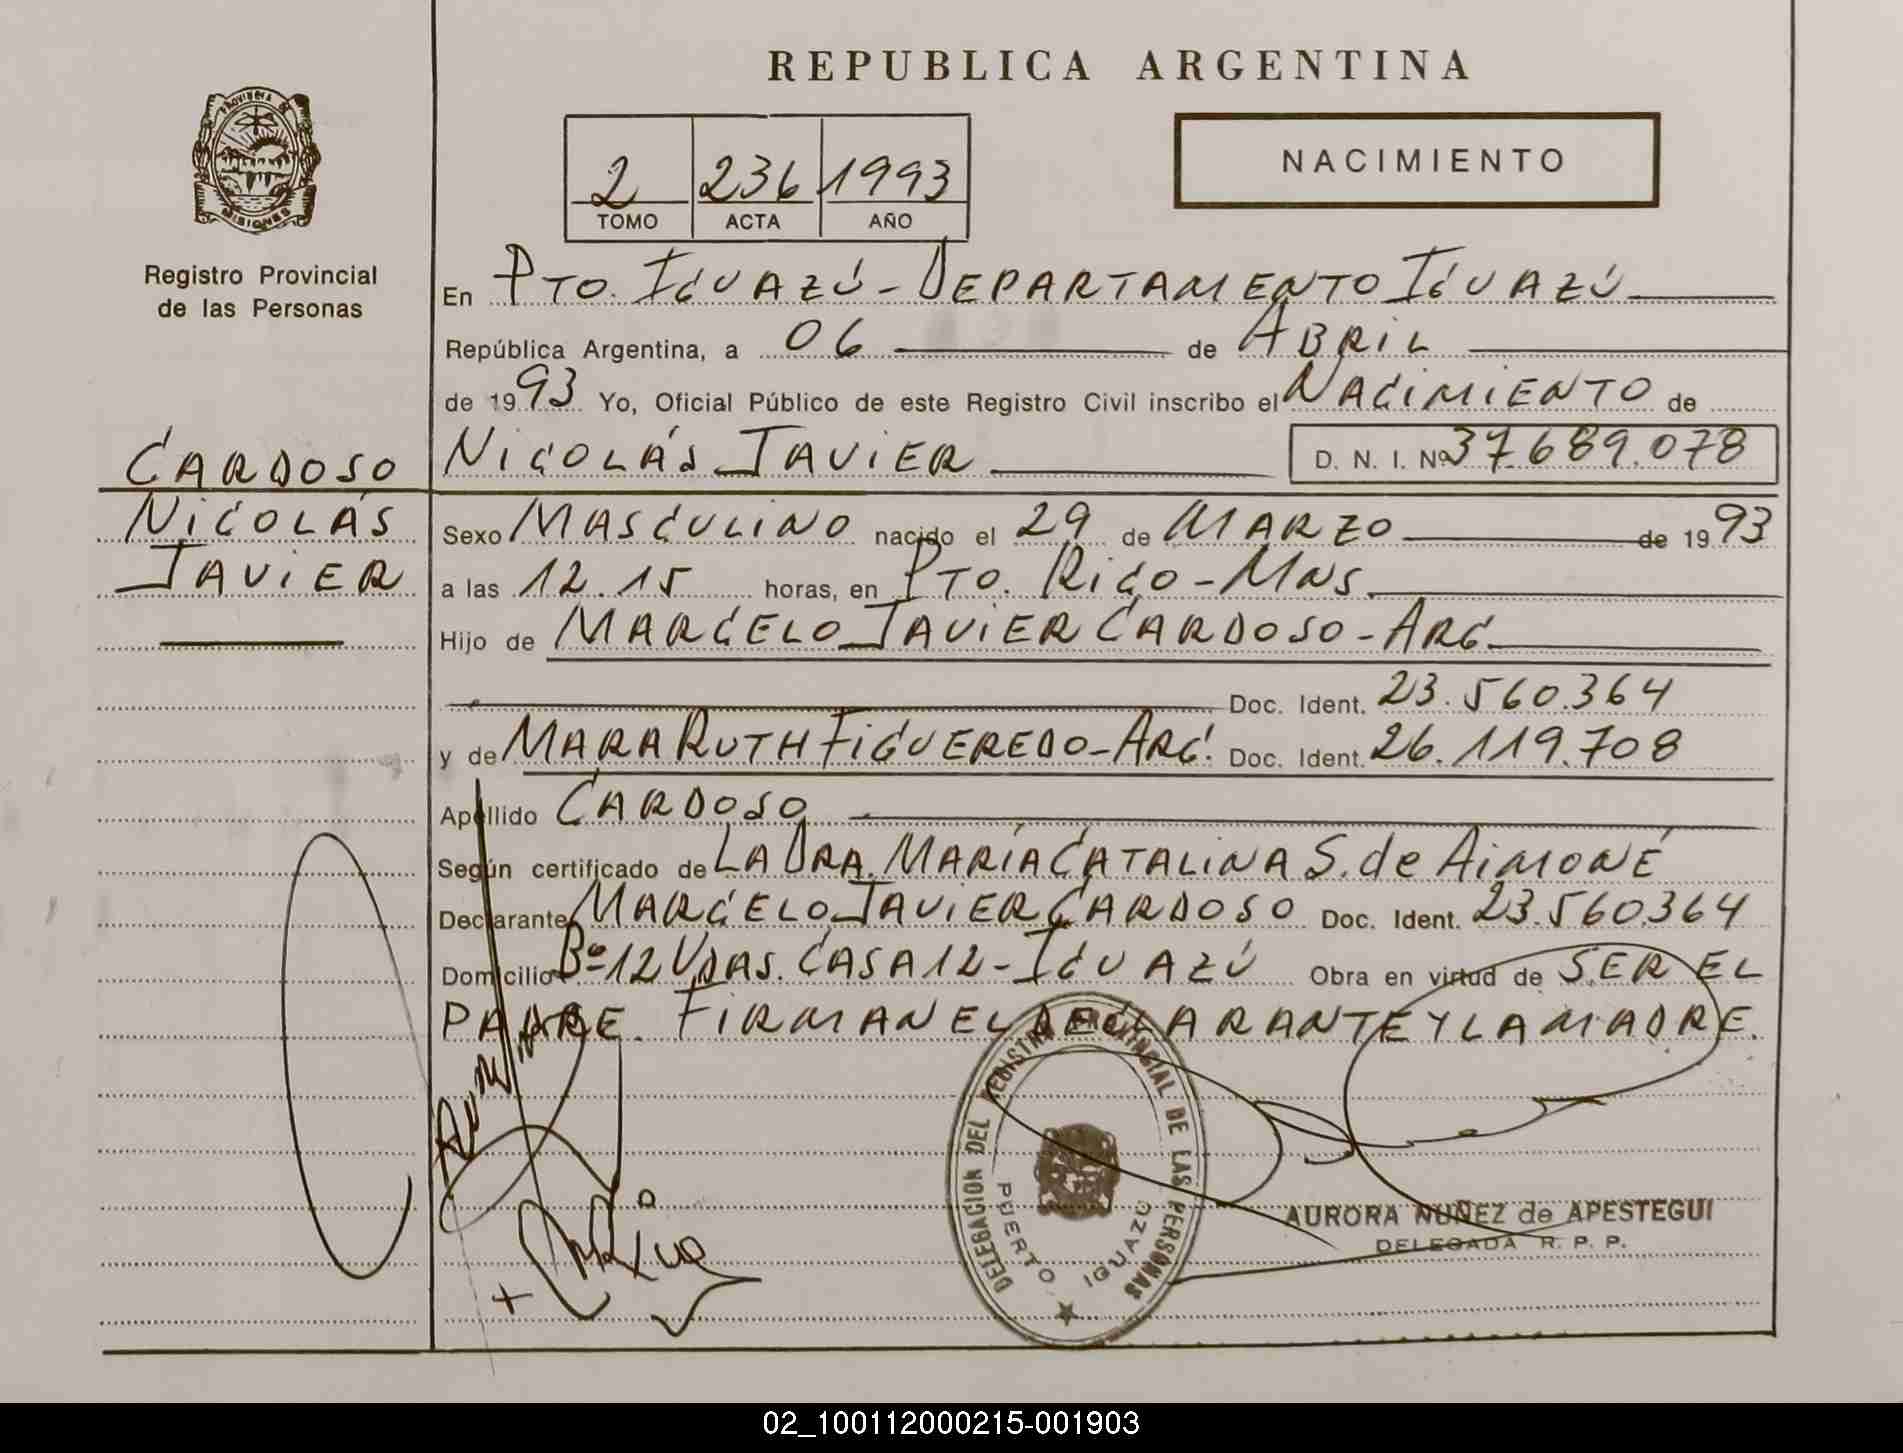 REPUBLICA ARGENTINA
PROVINCIA DE
MISIONES
Registro Provincial
de las Personas
2 236 1993
TOMO ACTA AÑO
NACIMIENTO
En PTO. IGUAZÚ - DEPARTAMENTO IGUAZÚ
República Argentina, a 06 de ABRIL
de 1993 Yo, Oficial Público de este Registro Civil inscribo el NACIMIENTO de
NICOLÁS JAVIER D. N. I. Nº 37.689.078
CARDOSO
NICOLÁS
JAVIER
Sexo MASCULINO nacido el 29 de MARZO de 1993
a las 12.15 horas, en PTO. RICO - MNS.
Hijo de MARCELO JAVIER CARDOSO - ARG.
Doc. Ident. 23.560.364
y de MARA RUTH FIGUEREDO - ARG. Doc. Ident. 26.119.708
Apellido CARDOSO
Según certificado de LA DRA. MARÍA CATALINA S. de AIMONÉ
Declarante MARCELO JAVIER CARDOSO Doc. Ident. 23.560.364
Domicilio Bº 12 VDAS. CASA 12 - IGUAZÚ Obra en virtud de SER EL
PADRE. FIRMAN EL DECLARANTE Y LA MADRE.
DELEGACION DEL REGISTRO PROVINCIAL DE LAS PERSONAS
PUERTO IGUAZU
AURORA NUÑEZ de APESTEGUI
DELEGADA R. P. P.
02_100112000215-001903